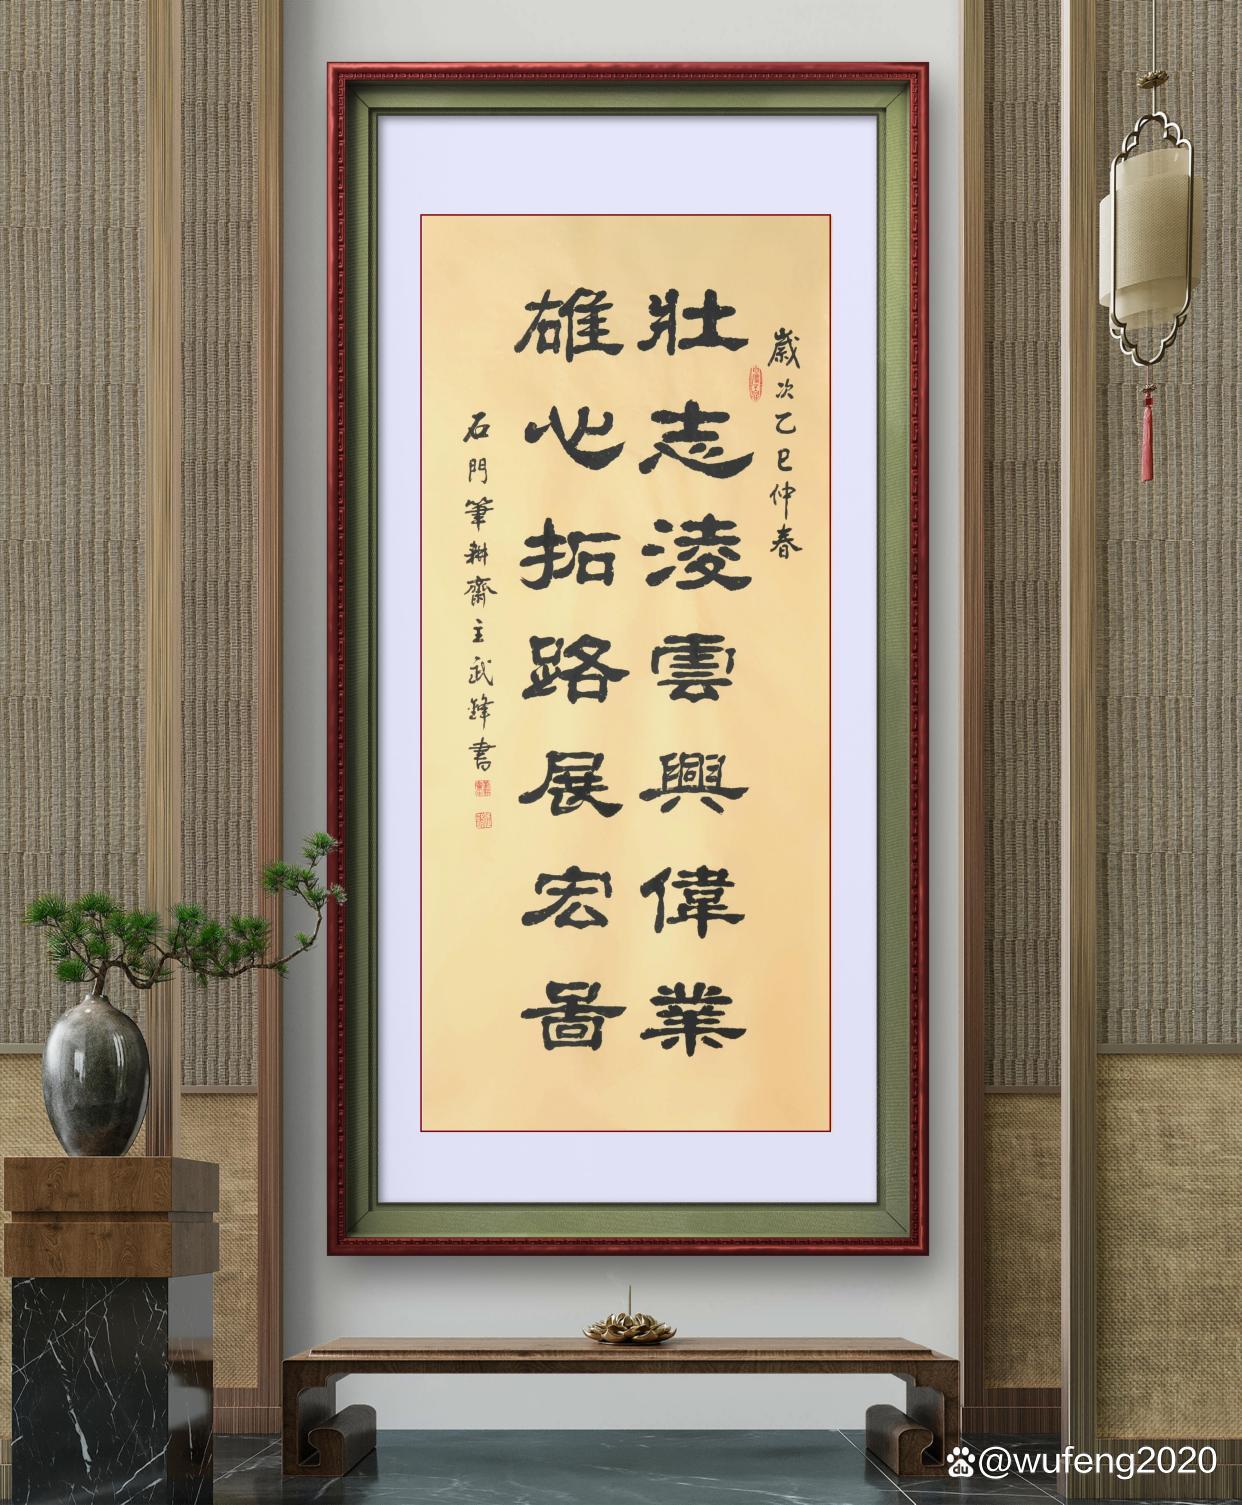 歲次乙巳仲春
壯志凌雲興偉業
雄心拓路展宏圖
石門筆耕齋主武鋒書
du
@wufeng2020